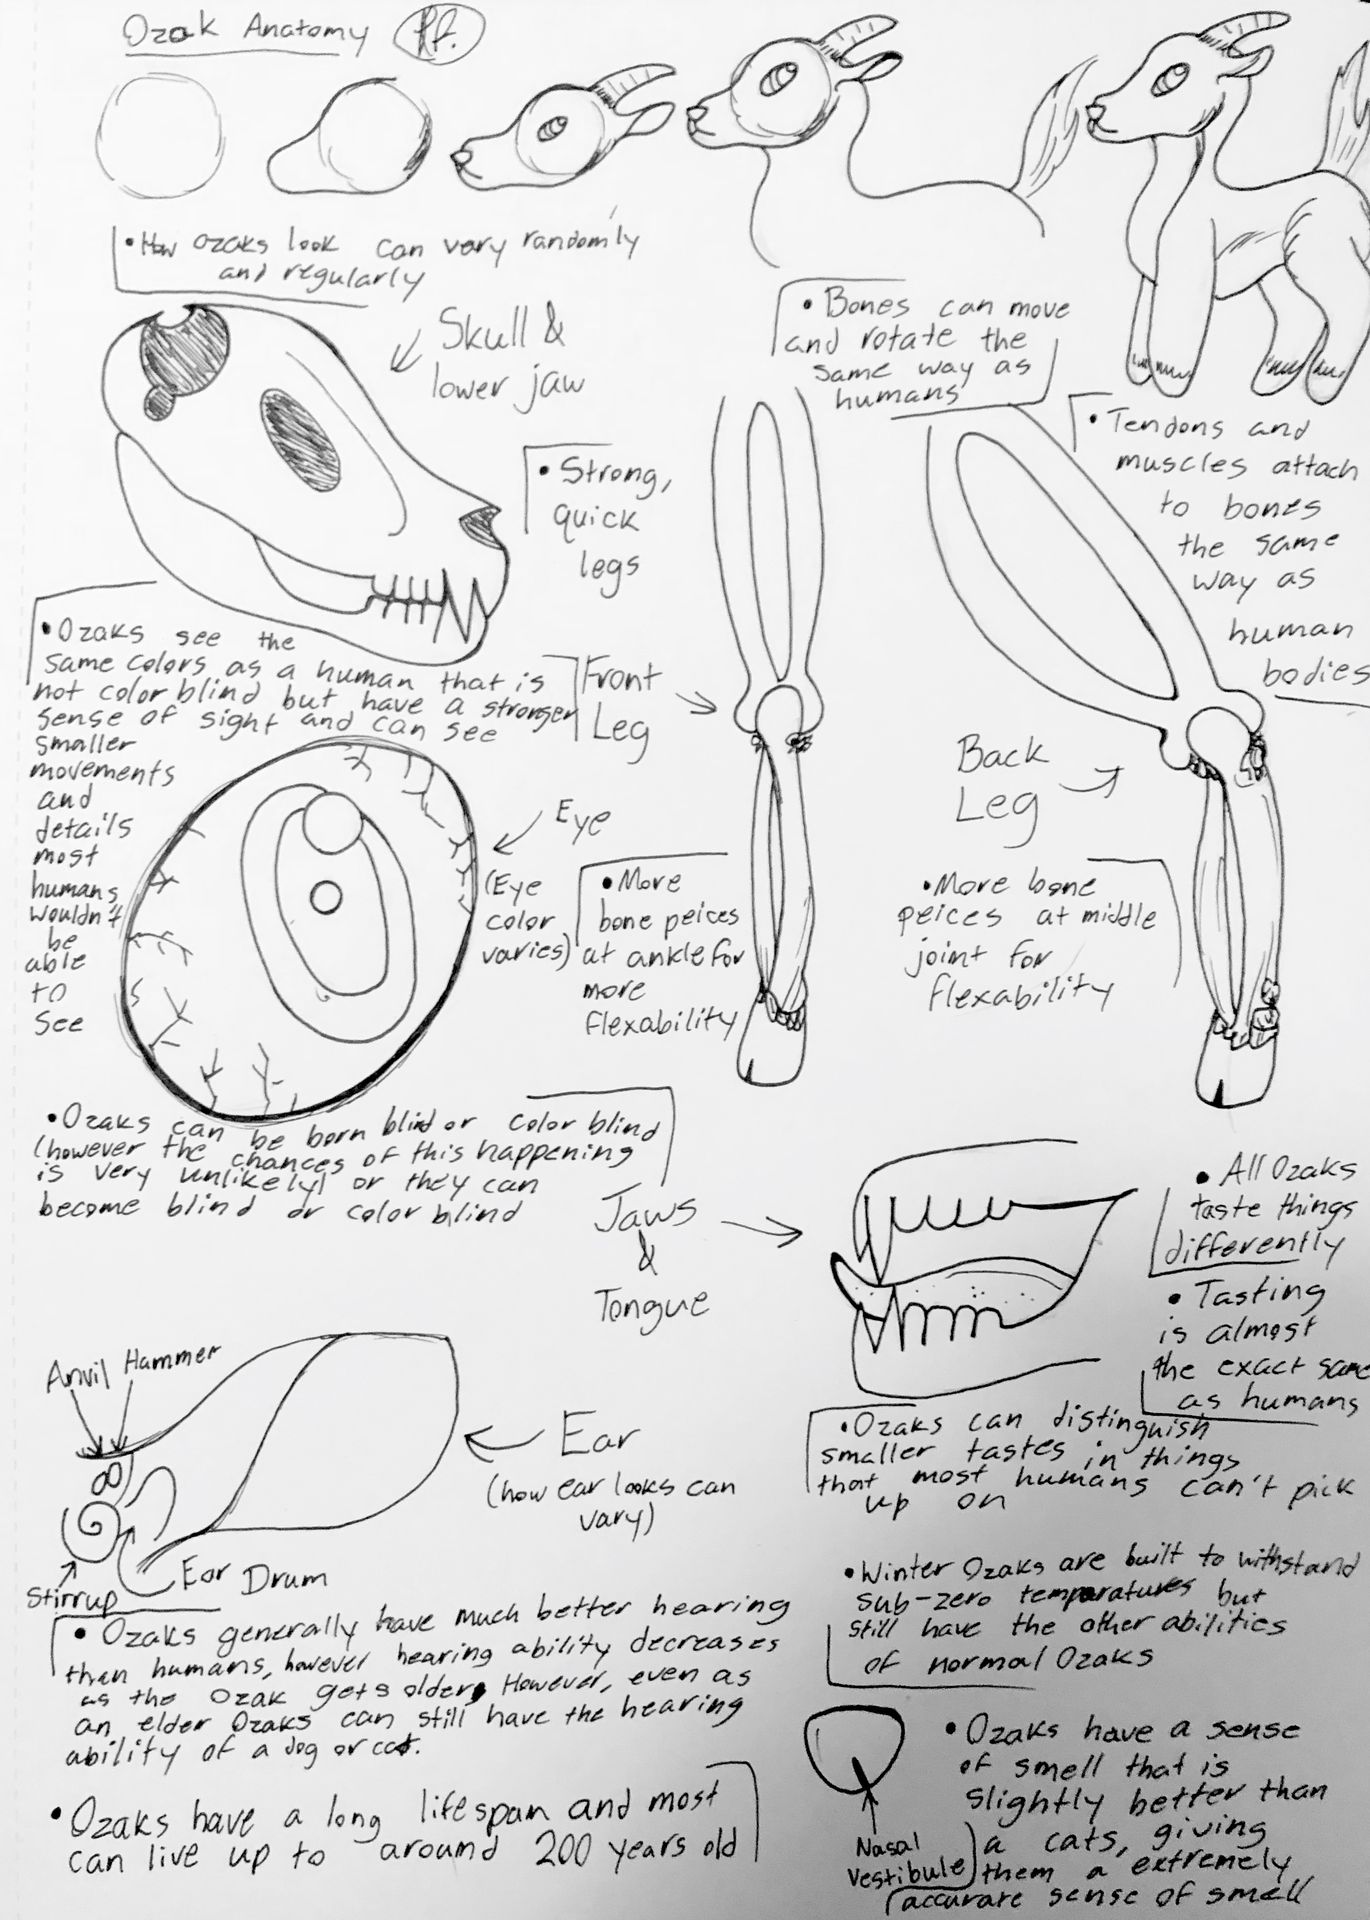 Ozak Anatomy
• How ozaks look can very randomly
and regularly
Skull &
lower jaw
• Bones can move
and rotate the
same way as
humans
• Tendons and
muscles attach
to bones
the same
way as
human
bodies
• Strong,
quick
legs
• Ozaks see the
same colors as a human that is
not color blind but have a stronger
sense of sight and can see
smaller
movements
and
details
most
humans
wouldn't
be
able
to
see
Front
Leg
Back
Leg
Eye
(Eye
color
varies)
• More
bone peices
at ankle for
more
flexability
• More bone
peices at middle
joint for
flexability
• Ozaks can be born blind or color blind
(however the chances of this happening
is very unlikely) or they can
become blind or color blind
Jaws
&
Tongue
• All Ozaks
taste things
differently
• Tasting
is almost
the exact same
as humans
• Ozaks can distinguish
smaller tastes in things
that most humans can't pick
up on
Anvil Hammer
Ear
(how ear looks can
vary)
Stirrup
Ear Drum
• Ozaks generally have much better hearing
than humans, however hearing ability decreases
as the Ozak gets older, However, even as
an elder Ozaks can still have the hearing
ability of a dog or cat.
• Ozaks have a long lifespan and most
can live up to around 200 years old
• Winter Ozaks are built to withstand
sub-zero temperatures but
still have the other abilities
of normal Ozaks
• Ozaks have a sense
of smell that is
slightly better than
a cats, giving
them a extremely
accurate sense of smell
Nasal
Vestibule